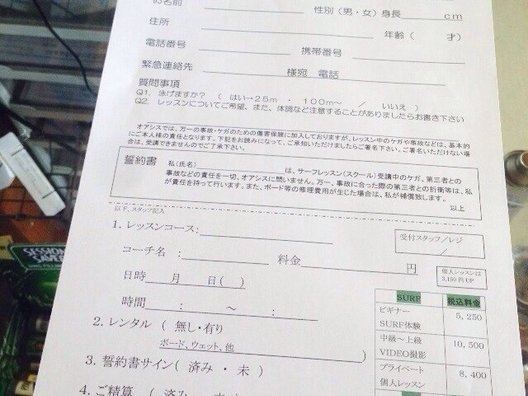 お名前　性別（男・女）身長　ｃｍ
住所　年齢（　才）
電話番号　携帯番号
緊急連絡先　様宛　電話
質問事項
Q1. 泳げますか？（　はい→25ｍ　・　100ｍ～　／　いいえ　）
Q2. レッスンについてご希望、また、体調など注意することがありましたらお書き下さい
オアシスでは、万一の事故・ケガのための傷害保険に加入しておりますが、レッスン中のケガや事故などは、基本的
にご本人様の責任となります。下記をお読みになって、ご承知いただけましたらご署名下さい。ご署名いただけない場
合は、受講できませんのでご了承下さい。
誓約書　私（氏名）　は、サーフレッスン（スクール）受講中のケガ、第三者との
事故などの責任を一切、オアシスに問いません。万一、事故に合った際の第三者との折衝等は、私
が責任を持って行います。また、ボード等の修理費用が生じた場合は、私が補償致します。
以上
以下、スタッフ記入
1. レッスンコース：
受付スタッフ／レジ
／
コーチ名　：　料金　円
個人レッスンは
3,150円UP
日時　月　日（　）
時間　：　～　：
2. レンタル（　無し・有り
ボード、ウェット、他　）
3. 誓約書サイン（　済み　・　未　）
4. ご精算　（　済み　・　未　）
SURF　税込料金
ビギナー　5,250
SURF体験
中級～上級　10,500
VIDEO撮影
プライベート　8,400
個人レッスン
SESSION